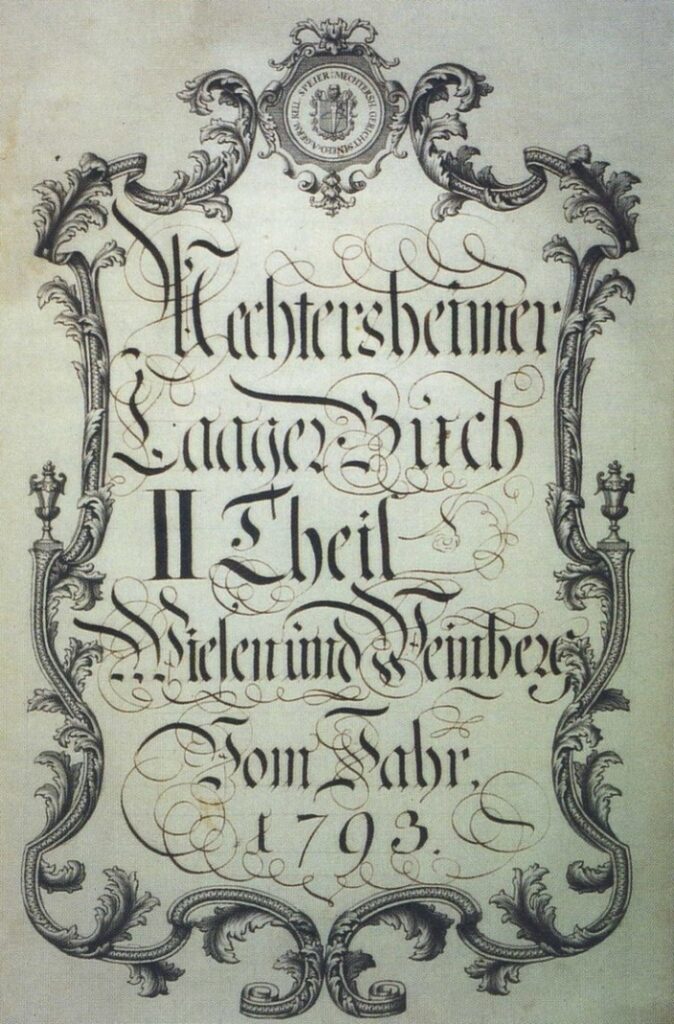 SPEIER MECHTERSH. GERICHTS
Mechtersheimer
Laager Buch
II Theil
Wiesen und Weinberg
Vom Jahr.
1793.